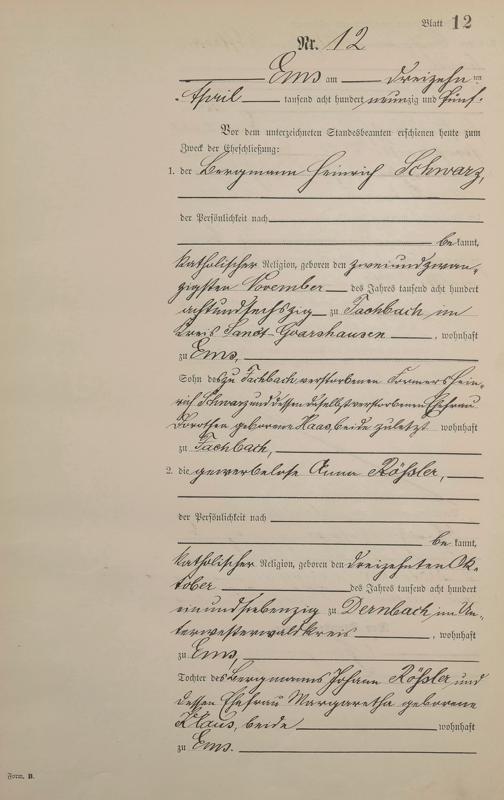 Blatt 12
Nr. 12
Ems am dreizehnten
April tausend acht hundert neunzig und fünf.
Vor dem unterzeichneten Standesbeamten erschienen heute zum
Zweck der Eheschließung:
1. der Bergmann Heinrich Schwarz,
der Persönlichkeit nach
bekannt,
katholischer Religion, geboren den zweiundzwan-
zigsten November des Jahres tausend acht hundert
achtundsechszig zu Fachbach im
Kreis Sanct-Goarshausen, wohnhaft
zu Ems,
Sohn des zu Fachbach verstorbenen Formers Hein-
rich Schwarz und dessen daselbst verstorbenen Ehefrau
Dorothea geborene Haas, beide zuletzt wohnhaft
zu Fachbach,
2. die gewerbelose Anna Rößler,
der Persönlichkeit nach
bekannt,
katholischer Religion, geboren den dreizehnten Ok-
tober des Jahres tausend acht hundert
einundsiebenzig zu Dernbach im Un-
terwesterwaldkreis, wohnhaft
zu Ems,
Tochter des Bergmanns Johann Rößler und
dessen Ehefrau Margaretha geborene
Klaus, beide wohnhaft
zu Ems.
Form. B.